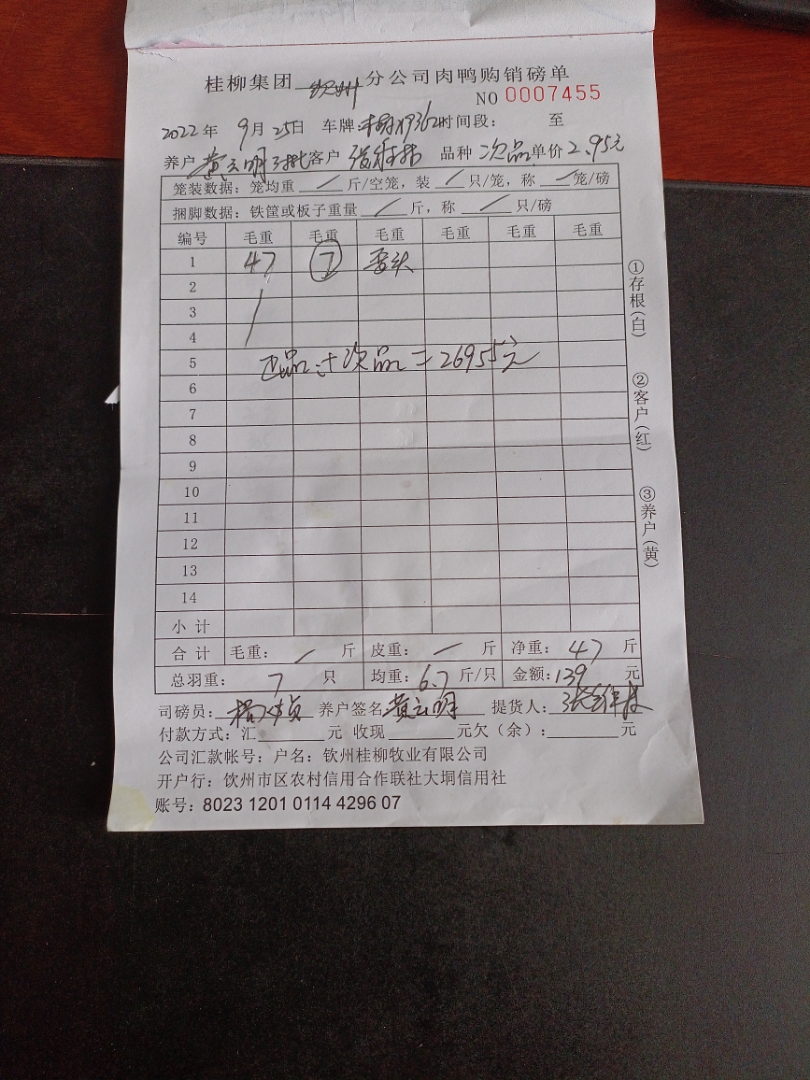 桂柳集团 钦州 分公司肉鸭购销磅单
NO 0007455
2022年 9月25日 车牌: 时间段: 至
养户 黄云明 客户 品种 次品 单价 2.95元
笼装数据: 笼均重 / 斤/空笼, 装 / 只/笼, 称 / 笼/磅
捆脚数据: 铁筐或板子重量 / 斤, 称 / 只/磅
编号 毛重 毛重 毛重 毛重 毛重 毛重
1 47 7
2
3
4
5 正品+次品=26955元
6
7
8
9
10
11
12
13
14
小计
合计 毛重: / 斤 皮重: / 斤 净重: 47 斤
总羽重: 7 只 均重: 6.7 斤/只 金额: 139 元
司磅员: 养户签名 黄云明 提货人:
付款方式: 汇 元 收现 元欠(余): 元
公司汇款帐号: 户名: 钦州桂柳牧业有限公司
开户行: 钦州市区农村信用合作联社大垌信用社
账号: 8023 1201 0114 4296 07
①存根(白)
②客户(红)
③养户(黄)